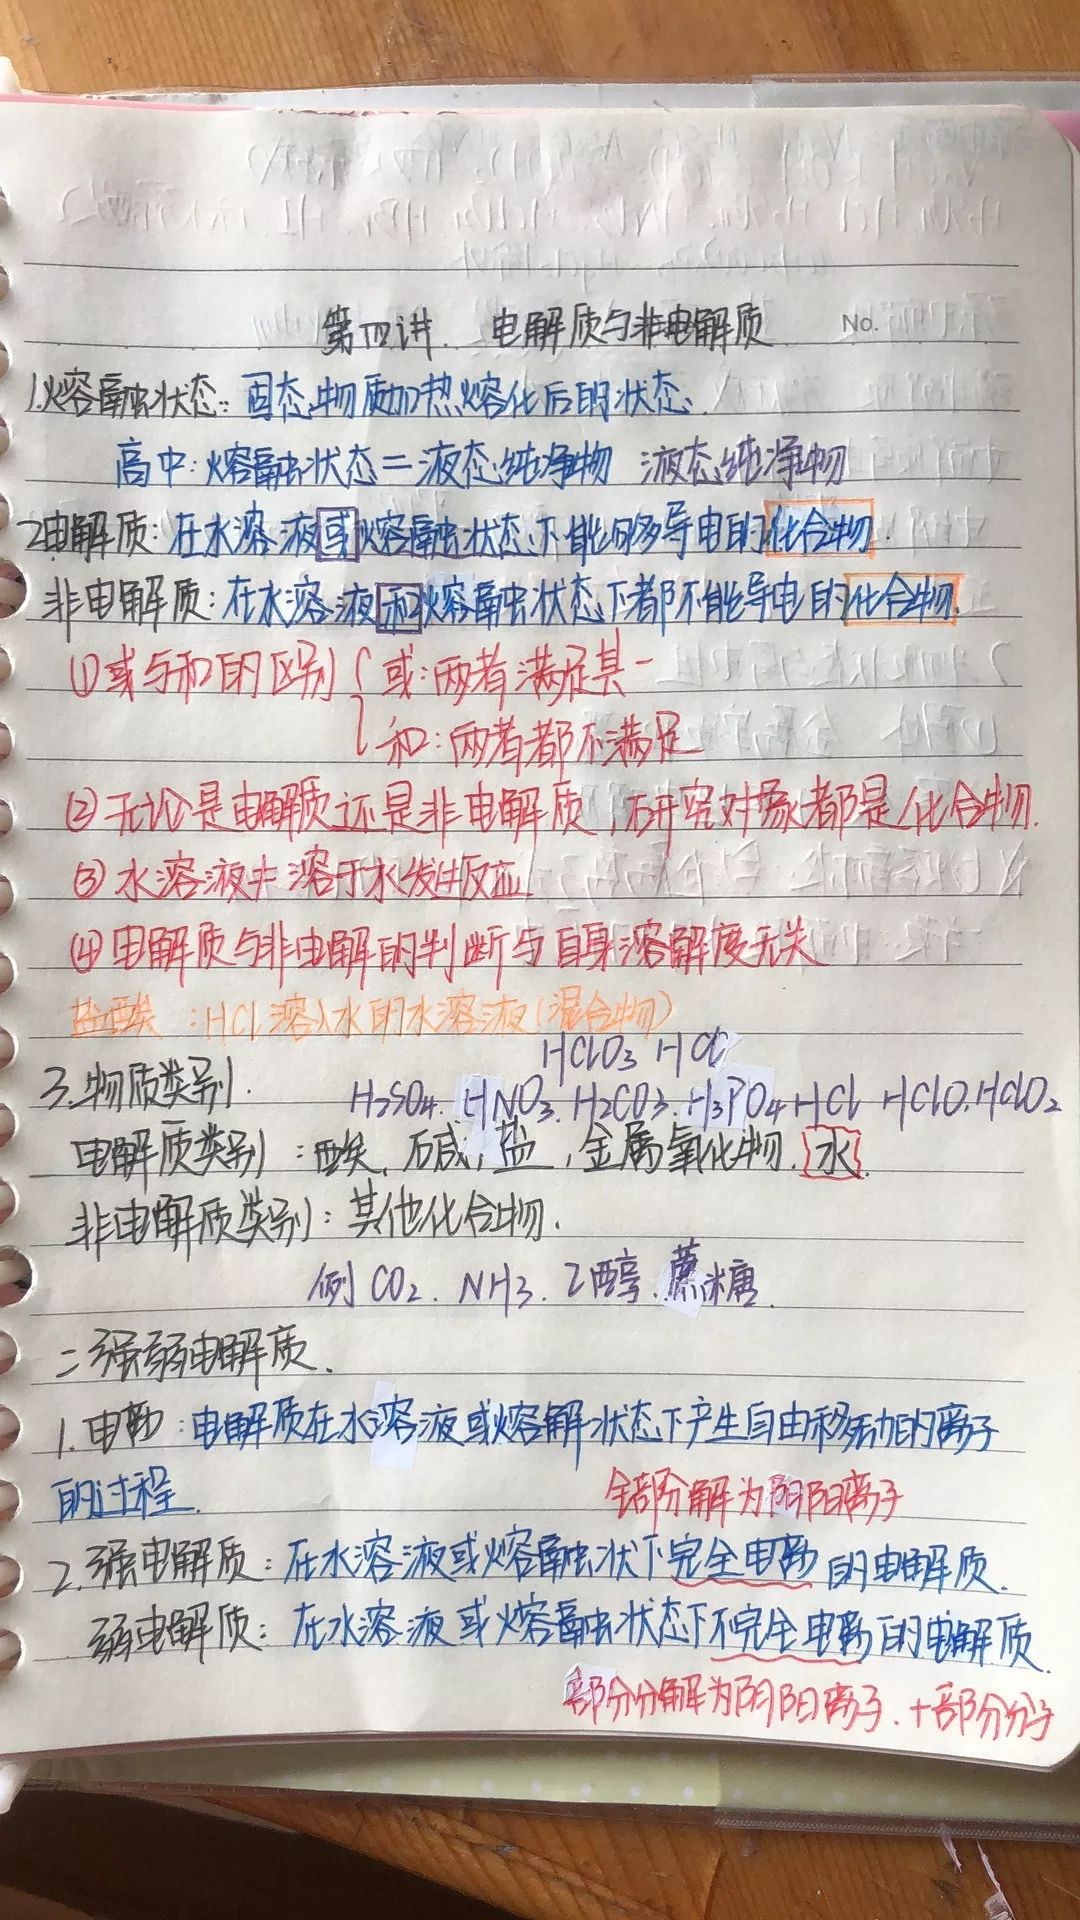 第四讲. 电解质与非电解质
No.
1.熔融状态:固态物质加热熔化后的状态.
高中:熔融状态=液态纯净物 液态纯净物
2电解质:在水溶液或熔融状态下能够导电的化合物.
非电解质:在水溶液和熔融状态下都不能导电的化合物.
①或与和的区别{或:两者满足其一
和:两者都不满足
②无论是电解质还是非电解质,研究对象都是化合物.
③水溶液≠溶于水发生反应
④电解质与非电解的判断与自身溶解度无关
盐酸:HCl溶入水的水溶液(混合物)
HClO3 HCl
3.物质类别.
H2SO4. HNO3. H2CO3. H3PO4 HCl HClO.HClO2
电解质类别:酸,碱,盐,金属氧化物.水.
非电解质类别:其他化合物.
例CO2. NH3. 乙醇.蔗糖.
二强弱电解质.
1.电离:电解质在水溶液或熔解状态下产生自由移动的离子
的过程.
全部分解为阴阳离子
2.强电解质:在水溶液或熔融状下完全电离的电解质.
弱电解质:在水溶液或熔融状态下不完全电离的电解质.
部分分解为阴阳离子.+部分分子